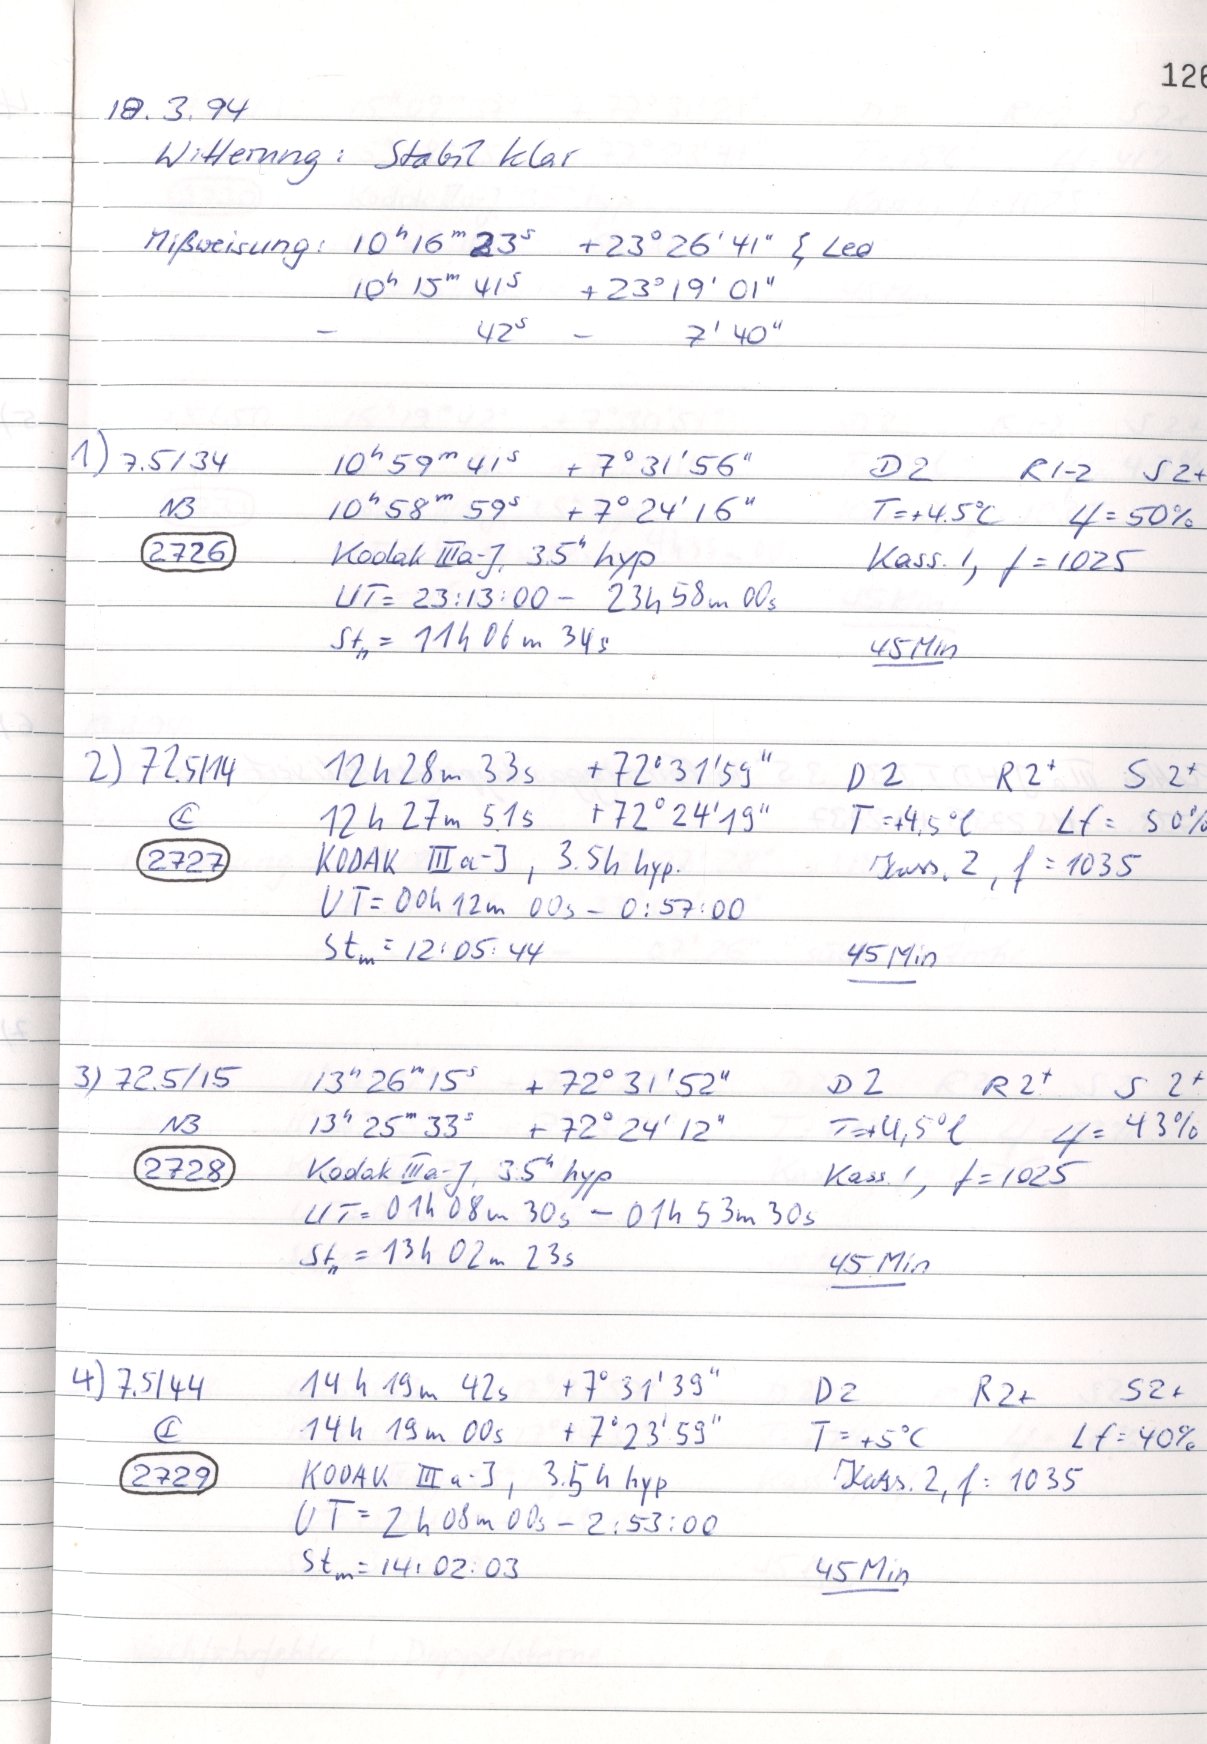 126
18.3.94
Witterung: Stabil klar
Mißweisung: 10ʰ16ᵐ23ˢ +23°26'41" ζ Leo
10ʰ15ᵐ41ˢ +23°19'01"
- 42ˢ - 7'40"
1) 7.5/34 10ʰ59ᵐ41ˢ +7°31'56" D2 R1-2 S2+
NB 10ʰ58ᵐ59ˢ +7°24'16" T=+4.5°C Lf=50%
2726 Kodak IIIa-J, 3.5ʰ hyp Kass. 1, f=1025
UT= 23:13:00 - 23h58m00s
Stₘ = 11h06m34s 45Min
2) 72.5/14 12h28m33s +72°31'59" D2 R2+ S2+
12h27m51s +72°24'19" T=+4,5°C Lf= 50%
2727 KODAK IIIa-J, 3.5h hyp. Kass. 2, f=1035
UT=00h12m00s - 0:57:00
Stₘ=12:05:44 45Min
3) 72.5/15 13ʰ26ᵐ15ˢ +72°31'52" D2 R2+ S2+
NB 13ʰ25ᵐ33ˢ +72°24'12" T=+4,5°C Lf= 43%
2728 Kodak IIIa-J, 3.5ʰ hyp Kass. 1, f=1025
UT= 01h08m30s - 01h53m30s
Stₘ = 13h02m23s 45Min
4) 7.5/44 14h19m42s +7°31'39" D2 R2+ S2+
14h19m00s +7°23'59" T=+5°C Lf=40%
2729 KODAK IIIa-J, 3.5h hyp Kass. 2, f=1035
UT=2h08m00s - 2:53:00
Stₘ=14:02:03 45Min